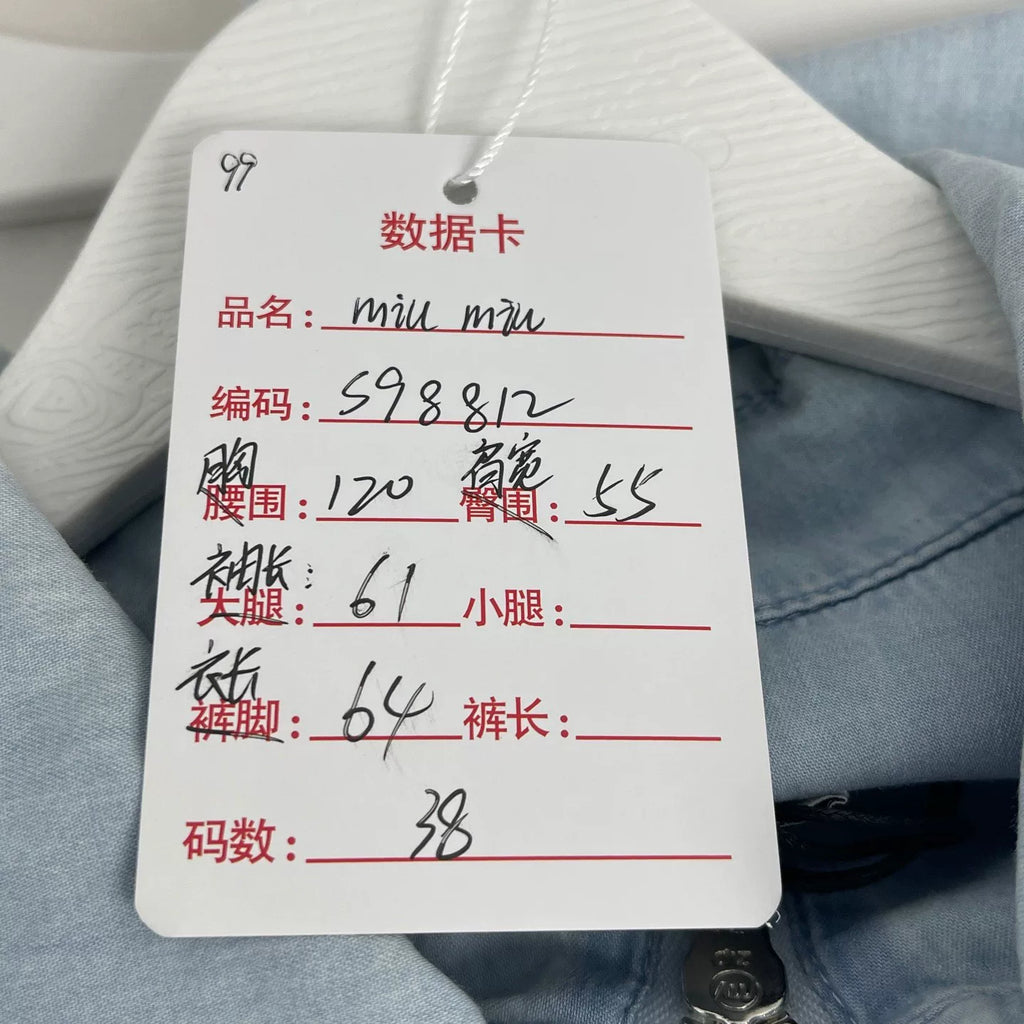 99
数据卡
品名: miu miu
编码: S98812
胸 肩宽
腰围: 120 臀围: 55
袖长:
大腿: 61 小腿:
衣长
裤脚: 64 裤长:
码数: 38